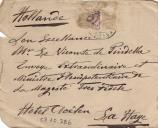 Hollande
Son Excellence
Mr Le Vicomte de Pindella
Envoyé Extraordinaire et
Ministre Plénipotentiaire de
Sa Majesté Très Fidèle
Hotel
La Haye